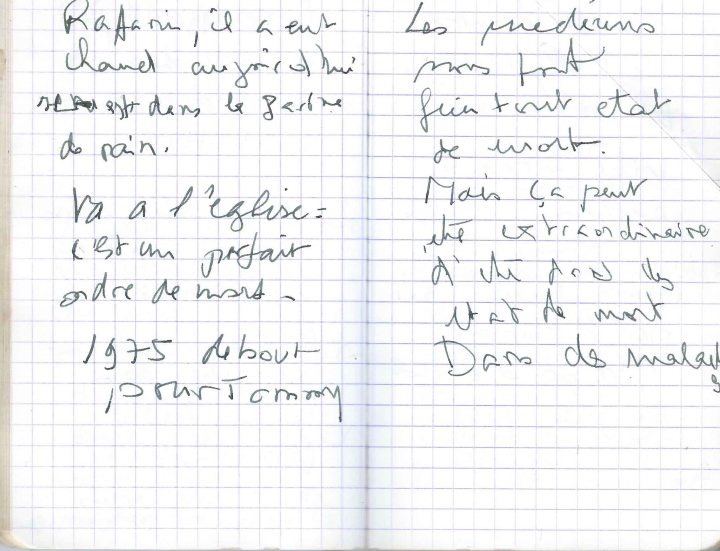 Raffarin, il a eut
chaud aujourd'hui
dans la
de pain.
Va a l'église =
c'est un parfait
ordre de mort -
1975 debout
pour Tommy
Les medecins
nous font
tout etat
de mort.
Mais ça peut
être extraordinaire
d'être
etat de mort
Dans des malad